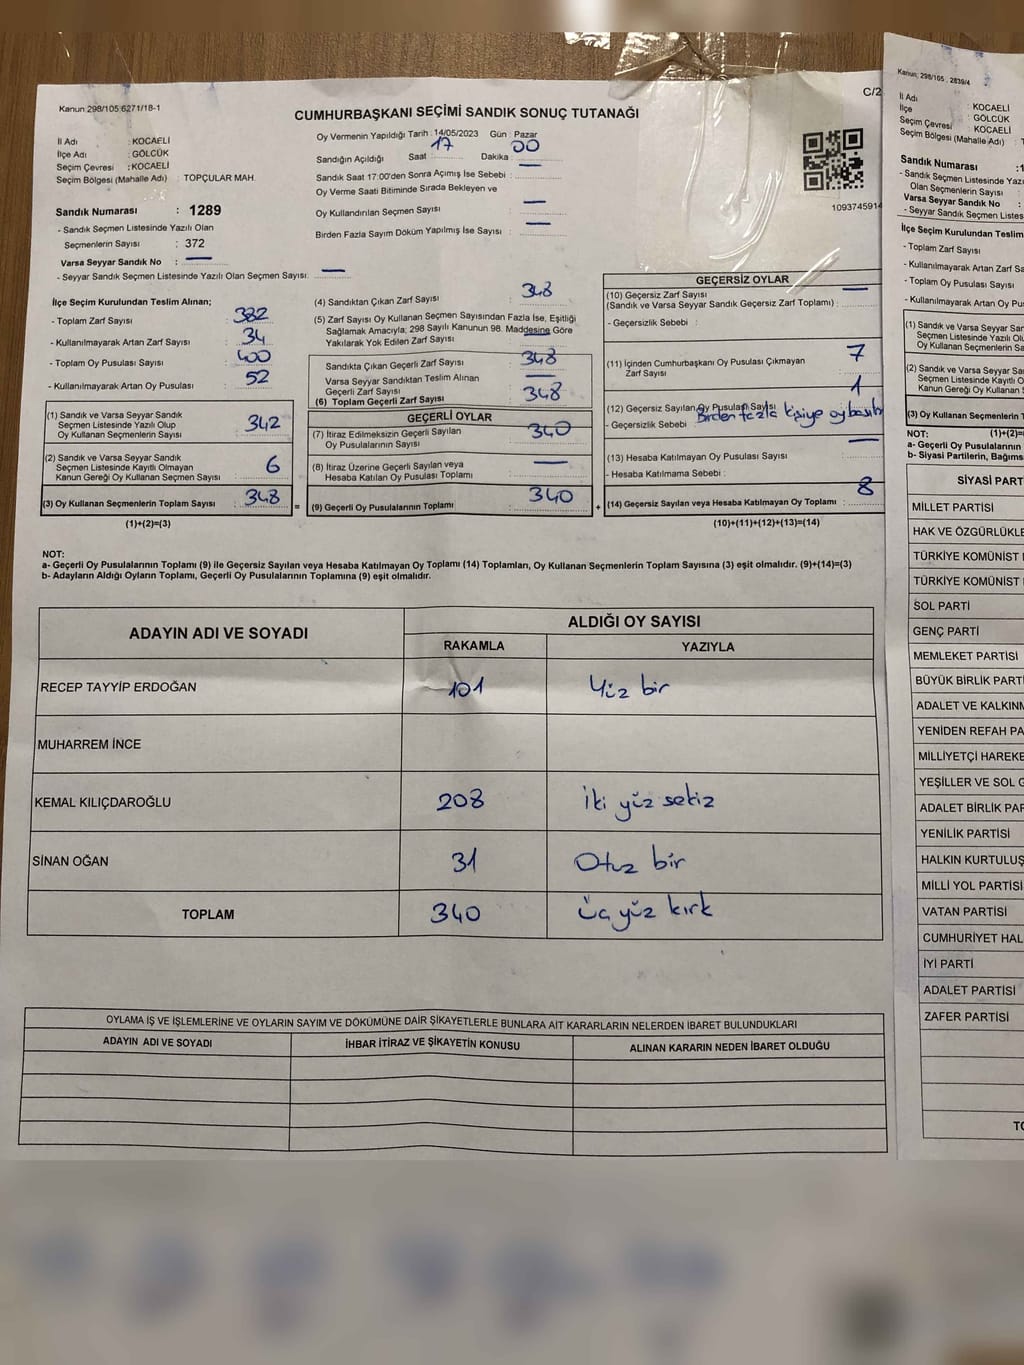 Kanun 298/105 6271/18-1
C/2
CUMHURBAŞKANI SEÇİMİ SANDIK SONUÇ TUTANAĞI
İl Adı : KOCAELİ
İlçe Adı : GÖLCÜK
Seçim Çevresi : KOCAELİ
Seçim Bölgesi (Mahalle Adı) : TOPÇULAR MAH.
Sandık Numarası : 1289
- Sandık Seçmen Listesinde Yazılı Olan
Seçmenlerin Sayısı : 372
Varsa Seyyar Sandık No : —
- Seyyar Sandık Seçmen Listesinde Yazılı Olan Seçmen Sayısı: —
Oy Vermenin Yapıldığı Tarih : 14/05/2023 Gün : Pazar
Sandığın Açıldığı Saat : 17 Dakika : 00
Sandık Saat 17:00'den Sonra Açılmış İse Sebebi : —
Oy Verme Saati Bitiminde Sırada Bekleyen ve
Oy Kullandırılan Seçmen Sayısı : —
Birden Fazla Sayım Döküm Yapılmış İse Sayısı : —
1093745914
İlçe Seçim Kurulundan Teslim Alınan;
- Toplam Zarf Sayısı : 382
- Kullanılmayarak Artan Zarf Sayısı : 34
- Toplam Oy Pusulası Sayısı : 400
- Kullanılmayarak Artan Oy Pusulası : 52
(1) Sandık ve Varsa Seyyar Sandık
Seçmen Listesinde Yazılı Olup
Oy Kullanan Seçmenlerin Sayısı : 342
(2) Sandık ve Varsa Seyyar Sandık
Seçmen Listesinde Kayıtlı Olmayan
Kanun Gereği Oy Kullanan Seçmen Sayısı : 6
(3) Oy Kullanan Seçmenlerin Toplam Sayısı : 348
(1)+(2)=(3)
(4) Sandıktan Çıkan Zarf Sayısı : 348
(5) Zarf Sayısı Oy Kullanan Seçmen Sayısından Fazla İse, Eşitliği
Sağlamak Amacıyla; 298 Sayılı Kanunun 98. Maddesine Göre
Yakılarak Yok Edilen Zarf Sayısı : —
Sandıkta Çıkan Geçerli Zarf Sayısı : 348
Varsa Seyyar Sandıktan Teslim Alınan
Geçerli Zarf Sayısı : —
(6) Toplam Geçerli Zarf Sayısı : 348
GEÇERLİ OYLAR
(7) İtiraz Edilmeksizin Geçerli Sayılan
Oy Pusulalarının Sayısı : 340
(8) İtiraz Üzerine Geçerli Sayılan veya
Hesaba Katılan Oy Pusulası Toplamı : —
= (9) Geçerli Oy Pusulalarının Toplamı : 340
GEÇERSİZ OYLAR
(10) Geçersiz Zarf Sayısı
(Sandık ve Varsa Seyyar Sandık Geçersiz Zarf Toplamı) : —
- Geçersizlik Sebebi :
(11) İçinden Cumhurbaşkanı Oy Pusulası Çıkmayan
Zarf Sayısı : 7
(12) Geçersiz Sayılan Oy Pusulası Sayısı : 1
- Geçersizlik Sebebi : Birden fazla kişiye oy basıldı
(13) Hesaba Katılmayan Oy Pusulası Sayısı : —
- Hesaba Katılmama Sebebi :
+ (14) Geçersiz Sayılan veya Hesaba Katılmayan Oy Toplamı : 8
(10)+(11)+(12)+(13)=(14)
NOT:
a- Geçerli Oy Pusulalarının Toplamı (9) ile Geçersiz Sayılan veya Hesaba Katılmayan Oy Toplamı (14) Toplamları, Oy Kullanan Seçmenlerin Toplam Sayısına (3) eşit olmalıdır. (9)+(14)=(3)
b- Adayların Aldığı Oyların Toplamı, Geçerli Oy Pusulalarının Toplamına (9) eşit olmalıdır.
ADAYIN ADI VE SOYADI ALDIĞI OY SAYISI
RAKAMLA YAZIYLA
RECEP TAYYİP ERDOĞAN 101 Yüz bir
MUHARREM İNCE
KEMAL KILIÇDAROĞLU 208 İki yüz sekiz
SİNAN OĞAN 31 Otuz bir
TOPLAM 340 üç yüz kırk
OYLAMA İŞ VE İŞLEMLERİNE VE OYLARIN SAYIM VE DÖKÜMÜNE DAİR ŞİKAYETLERLE BUNLARA AİT KARARLARIN NELERDEN İBARET BULUNDUKLARI
ADAYIN ADI VE SOYADI İHBAR İTİRAZ VE ŞİKAYETİN KONUSU ALINAN KARARIN NEDEN İBARET OLDUĞU
Kanun, 298/105, 2839/4
İl Adı : KOCAELİ
İlçe : GÖLCÜK
Seçim Çevresi : KOCAELİ
Seçim Bölgesi (Mahalle Adı) : T
Sandık Numarası :1
- Sandık Seçmen Listesinde Yazılı
Olan Seçmenlerin Sayısı :
Varsa Seyyar Sandık No :
- Seyyar Sandık Seçmen Listes
İlçe Seçim Kurulundan Teslim
- Toplam Zarf Sayısı
- Kullanılmayarak Artan Zarf Sa
- Toplam Oy Pusulası Sayısı
- Kullanılmayarak Artan Oy Pu
(1) Sandık ve Varsa Seyyar San
Seçmen Listesinde Yazılı Olu
Oy Kullanan Seçmenlerin Sa
(2) Sandık ve Varsa Seyyar San
Seçmen Listesinde Kayıtlı O
Kanun Gereği Oy Kullanan S
(3) Oy Kullanan Seçmenlerin T
NOT: (1)+(2)=
a- Geçerli Oy Pusulalarının To
b- Siyasi Partilerin, Bağıms
SİYASİ PART
MİLLET PARTİSİ
HAK VE ÖZGÜRLÜKLE
TÜRKİYE KOMÜNİST
TÜRKİYE KOMÜNİST
SOL PARTİ
GENÇ PARTİ
MEMLEKET PARTİSİ
BÜYÜK BİRLİK PARTİ
ADALET VE KALKINM
YENİDEN REFAH PA
MİLLİYETÇİ HAREKE
YEŞİLLER VE SOL G
ADALET BİRLİK PAR
YENİLİK PARTİSİ
HALKIN KURTULUŞ
MİLLİ YOL PARTİSİ
VATAN PARTİSİ
CUMHURİYET HAL
İYİ PARTİ
ADALET PARTİSİ
ZAFER PARTİSİ
TO